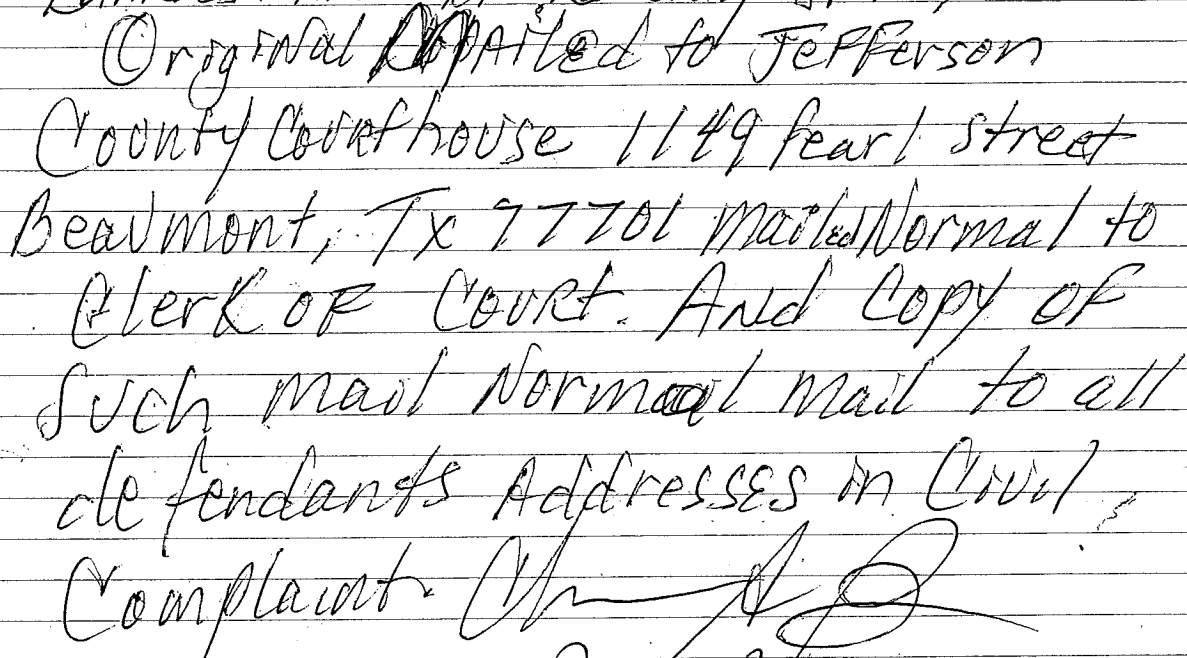 Original Mailed to Jefferson
County Courthouse 1149 Pearl Street
Beaumont, Tx 77701 Mailed Normal to
Clerk of Court. And Copy of
Such Mail Normal Mail to all
defendants Addresses in Civil
Complaint.